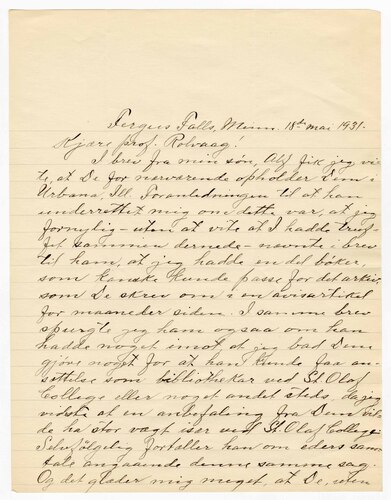 Fergus Falls, Minn. 18de mai 1931.
Kjære prof. Rolvaag!
I brev fra min søn, Alf fik jeg vi-
te, at De for nærværende opholder Dem i
Urbana, Ill. Foranledningen til at han
underrettet mig om dette var, at jeg
fornylig - uten at vite at I hadde truf-
fet sammen dernede - nævnte i brev
til ham, at jeg hadde en del bøker,
som kanske kunde passe for det arkiv
som De skrev om i en avisartikel
for maaneder siden. I samme brev
spurgte jeg ham ogsaa om han
hadde noget imot at jeg bad Dem
gjøre noget for at han kunde faa an-
sættelse som bibliothekar ved St. Olaf
College eller noget andet steds, da jeg
vidste at en anbefaling fra Dem vil-
de ha stor vægt især ved St. Olaf College.
Selvfølgelig fortæller han om eders sam-
tale angaaende denne samme sag.
Og det glæder mig meget, at De, uten